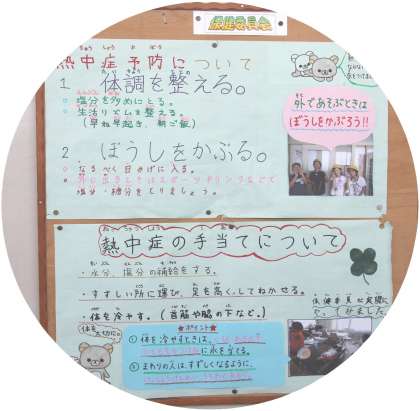 保健委員会
熱中症予防について
1 体調を整える。
○ 塩分を多めにとる。
○ 生活リズムを整える。
(早ね早起き、朝ご飯)
外であそぶときは
ぼうしをかぶろう!!
2. ぼうしをかぶる。
○ なるべく日かげに入る。
塩分・糖分をとりましょう。
熱中症の手当てについて
・水分、塩分の補給をする。
・すずしい所に運び、足を高くしてねかせる。
・体を冷やす。(首筋や脇の下など。)
体を
大切にね
★ポイント★
① 体を冷やすときは、
に氷を当てる。
② まわりの人は、すずしくなるように、